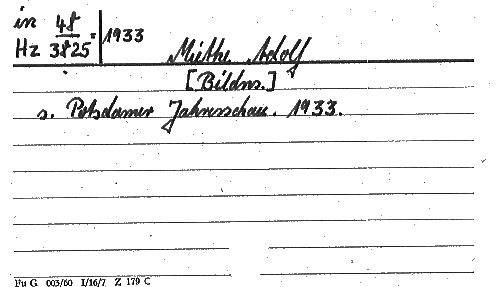 in 48
Hz 3825 = 1933
Miethe Adolf
[Bildns.]
s. Potsdamer Jahresschau. 1933.
Fu G 003/60 I/16/7 Z 179 C